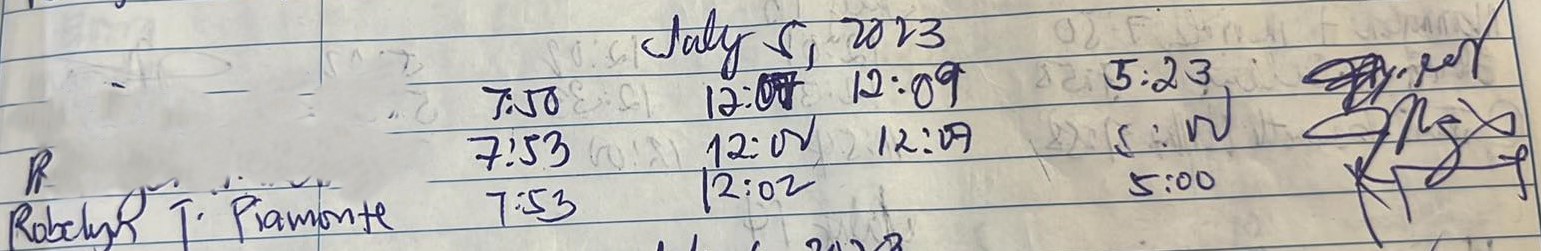 July 5, 2023
7:50 12:07 12:09 5:23
7:53 12:00 12:09 5:00
Robelyn T. Piamonte 7:53 12:02 5:00